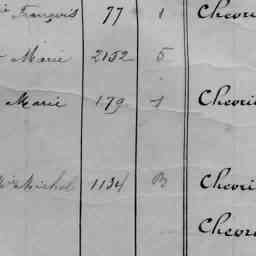 François 77 1 Chevri
Marie 2152 5
Marie 179 1 Chevri
Michel 1134 B Chevri
Chevri